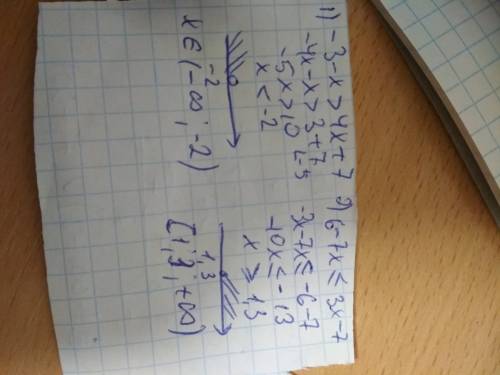 1) -3-x>4x+7
-4x-x>3+7
-5x>10 |:-5
x<-2
-2
x∈(-∞;-2)
2) 6-7x≤3x-7
-3x-7x≤-6-7
-10x≤-13
x≥1,3
1,3
[1,3;+∞)